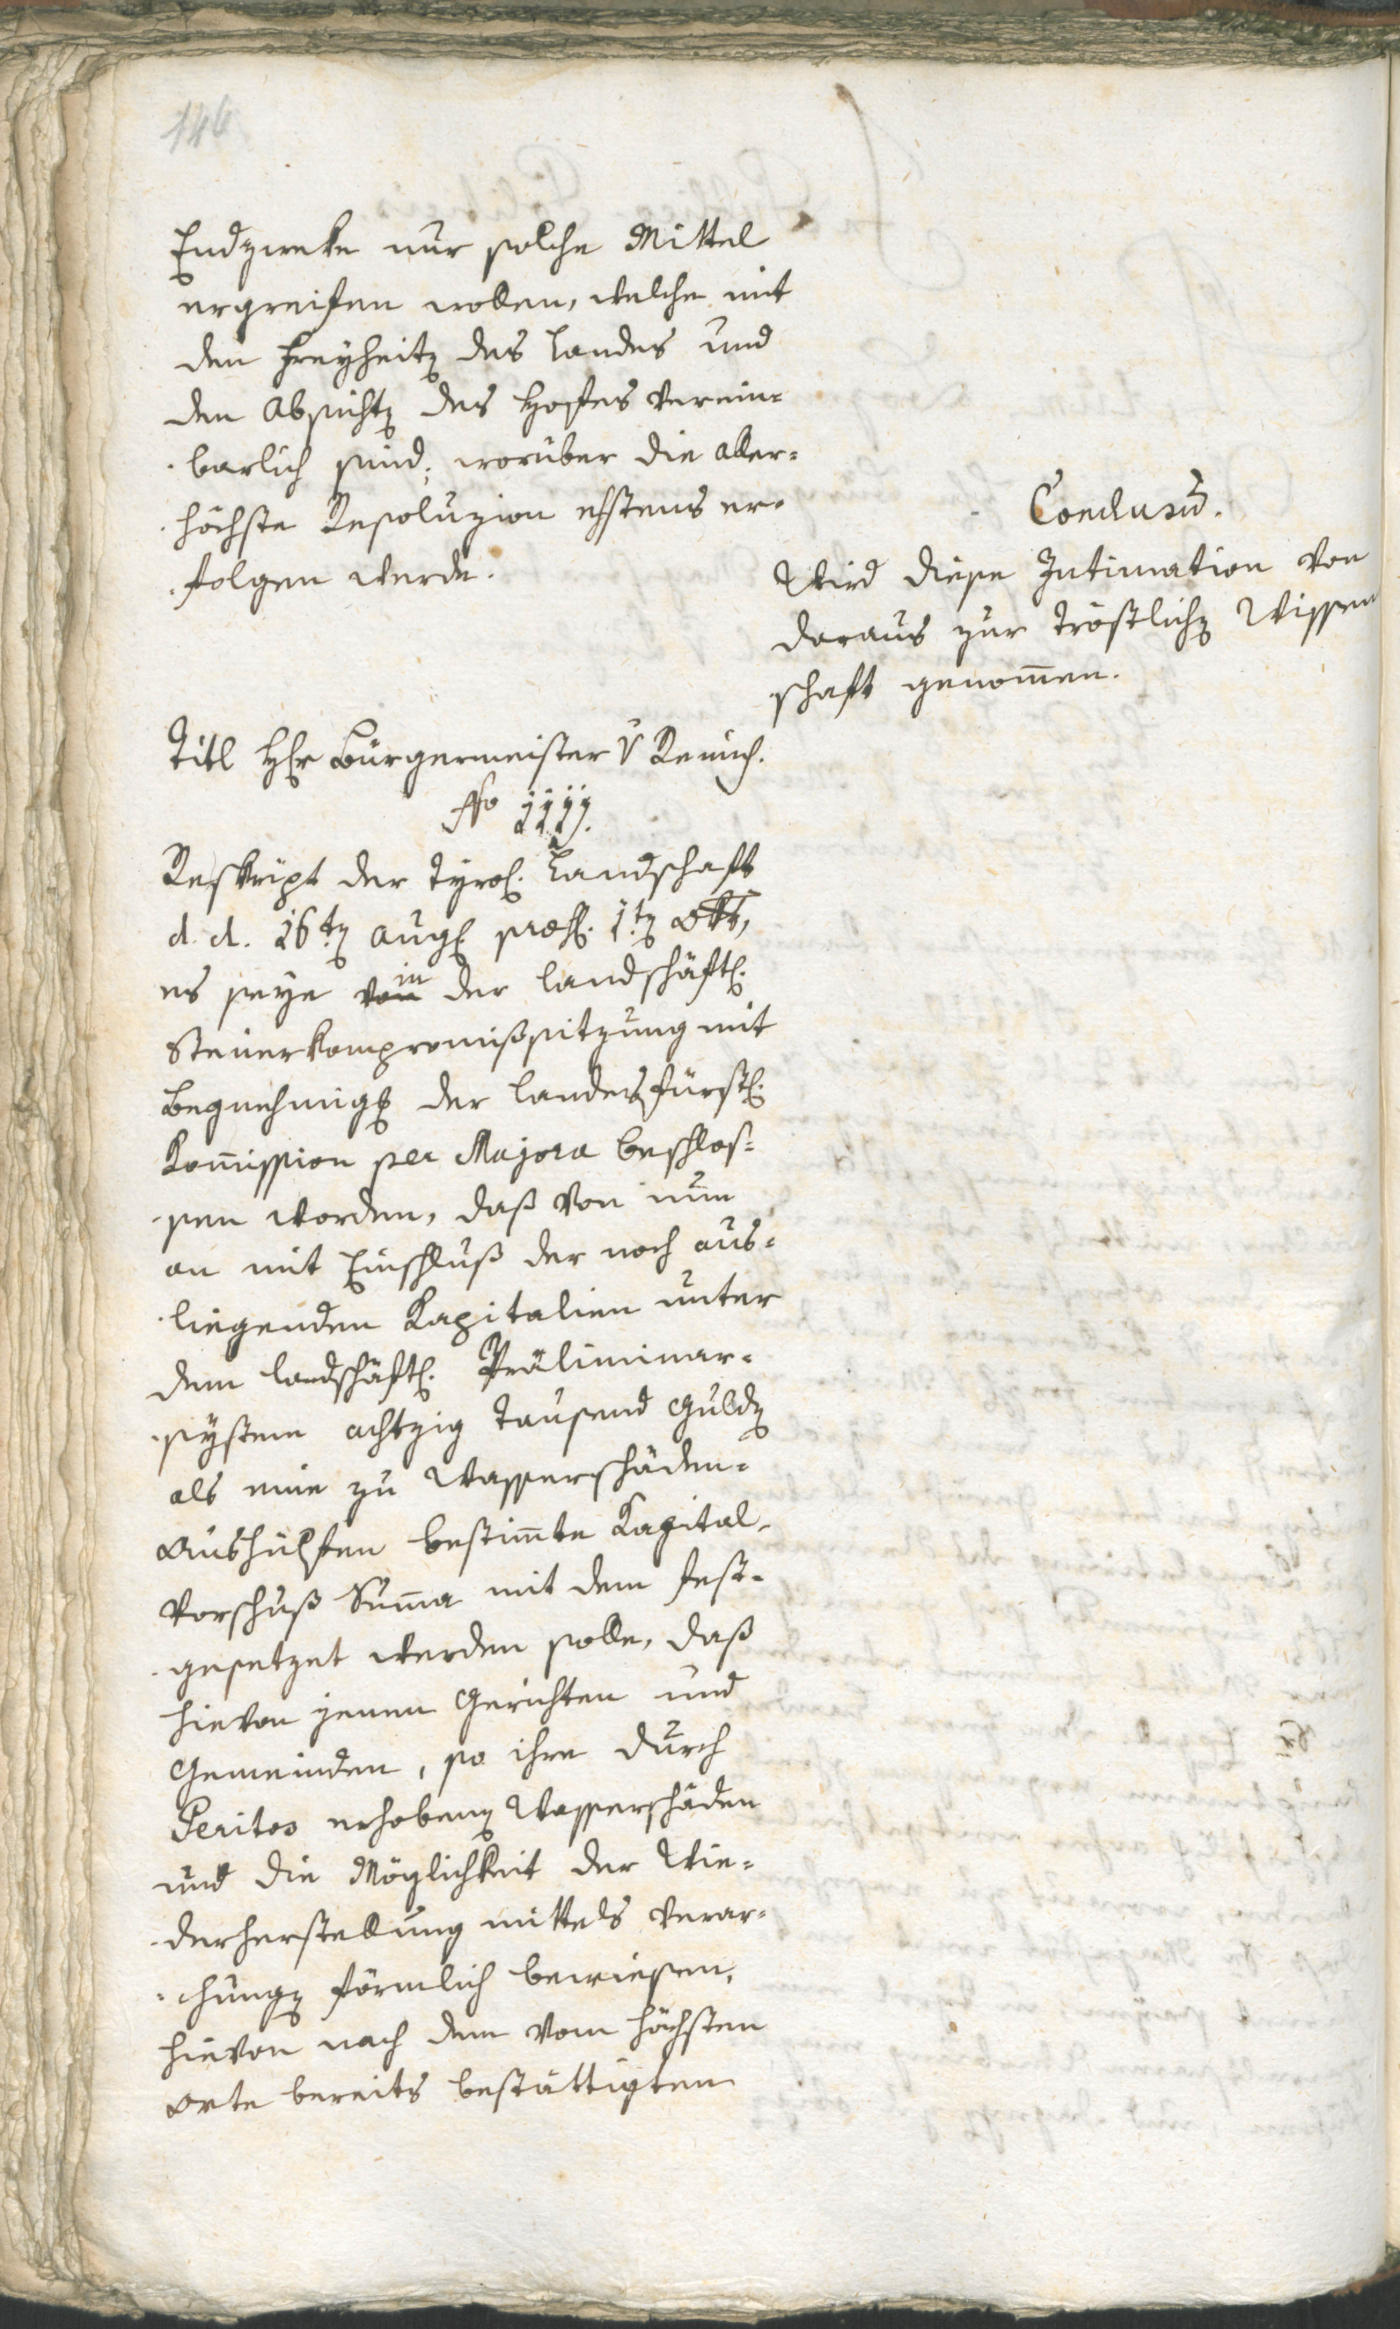 146
Endzweke nur solche Mittel
ergreifen wollen, welche mit
den Freyheitn des Landes und
den Absichtn des Hofes verein-
barlich sind; worüber die aller-
höchste Resoluzion ehstens er-
folgen werde.
Conclusum.
Wird diese Intimation von
daraus zur tröstlichn Wissen
schaft genommen.
Titl Hr Bürgermeister v Remich.
Reskript der Tyrol. Landschaft
d. d. 26tn Aug. præs. 1tn Okt,
es seye von in der landschäftl.
Steuerkompromißsitzung mit
Begnehmigg der landesfürstl.
Kommission per Majora beschlos-
sen worden, daß von nun
an mit Einschluß der noch aus-
liegenden Kapitalien unter
dem landschäftl. Präliminar-
system achtzig tausend Guldn
als eine zu Wasserschäden-
Aushülfen bestimmte Kapital-
Vorschuß Summa mit dem fest-
gesetzet werden solle, daß
hievon jenen Gerichten und
Gemeinden, so ihre durch
Peritos erhobenn Wasserschäden
und die Möglichkeit der Wie-
derherstellung mittels Verar-
chungn förmlich beweisen,
hievon nach dem vom höchsten
Orte bereits bestättigten